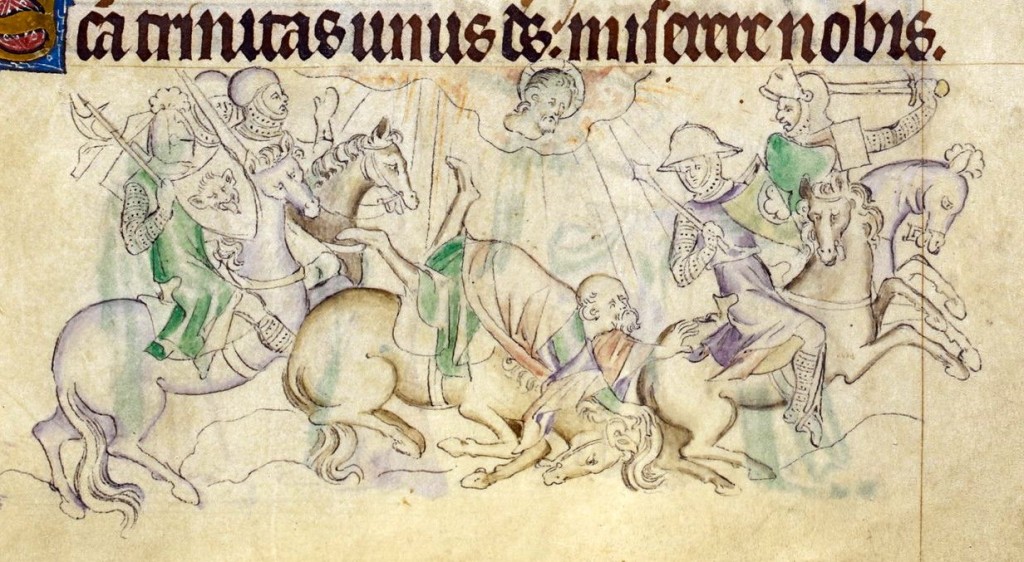 ca trinitas unus ds: miserere nobis.